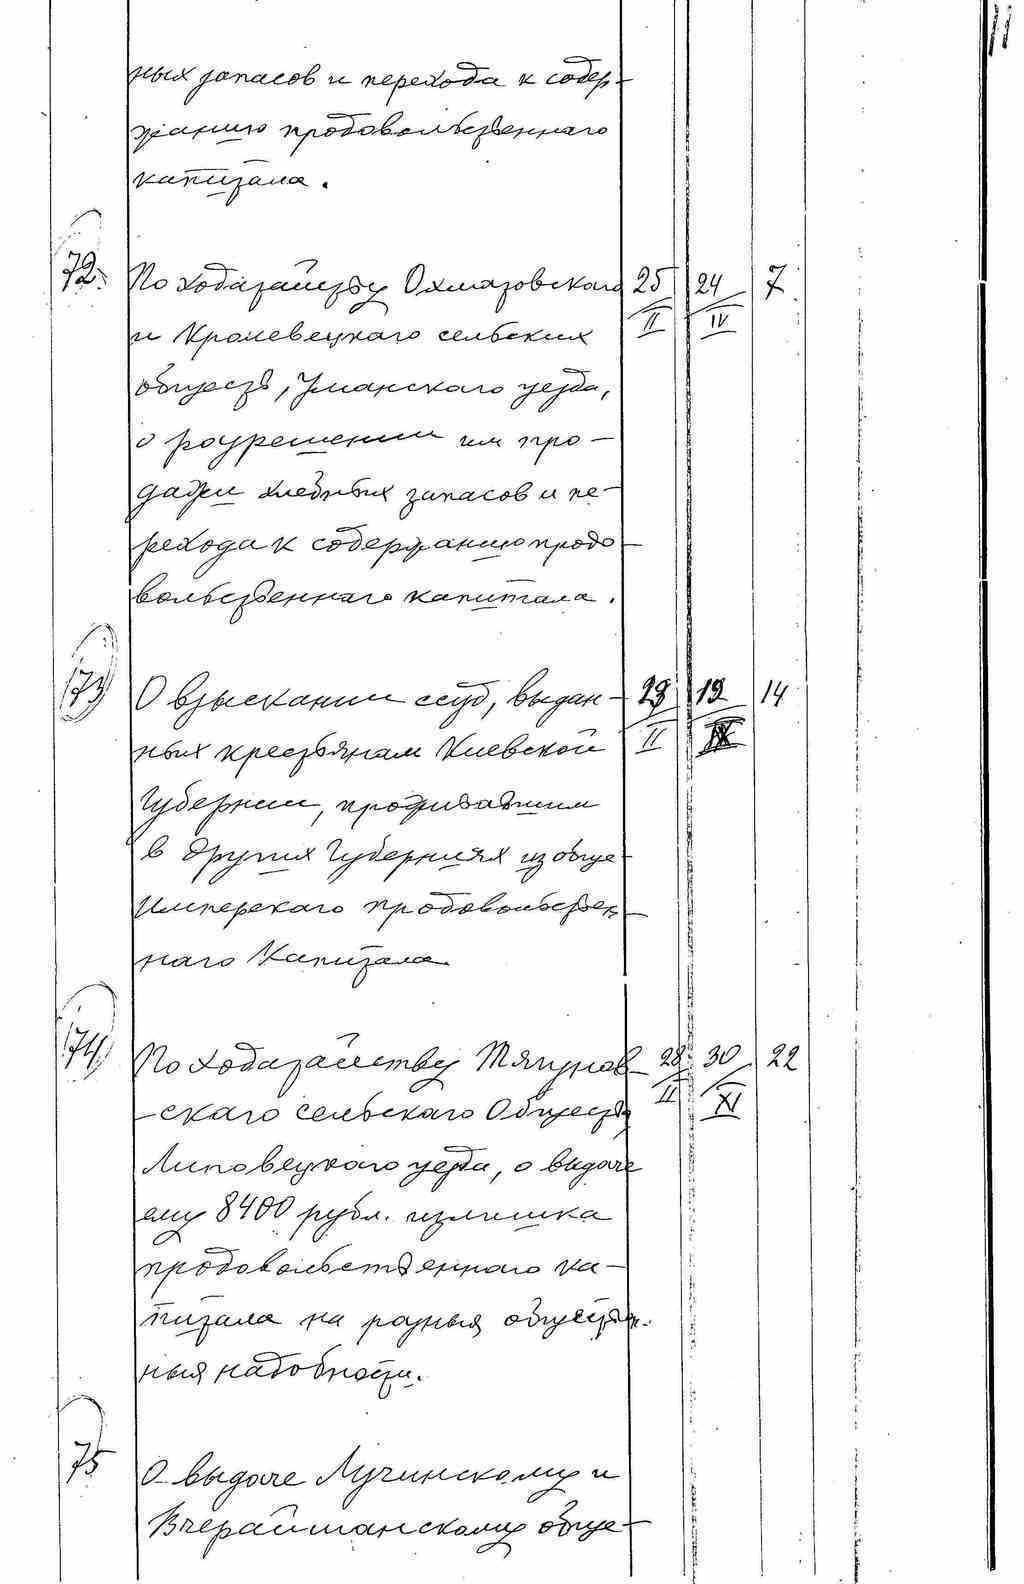 11
ных запасов и перехода к содер-
жанию продовольственнаго
капитала.
72. По ходатайству Охматовскаго 25/II 24/IV 7
и Кролевецкаго сельских
обществ, Уманскаго уезда,
о разрешении им про-
дажи хлебных запасов и пе-
рехода к содержанию продо-
вольственнаго капитала.
73 О взыскании ссуд, выдан- 28/II 19/IX 14
ных крестьянам Киевской
Губернии, проживавшим
в других Губерниях из обще
Имперскаго продовольствен-
наго Капитала
74 По ходатайству Тягунов- 28/II 30/XI 22
-скаго сельскаго Общества
Липовецкаго уезда, о выдаче
ему 8400 рубл. излишка
продовольственнаго ка-
питала на разныя обществен-
ныя надобности.
75 О выдаче Лучинскому и
Вчерайшанскому обще-